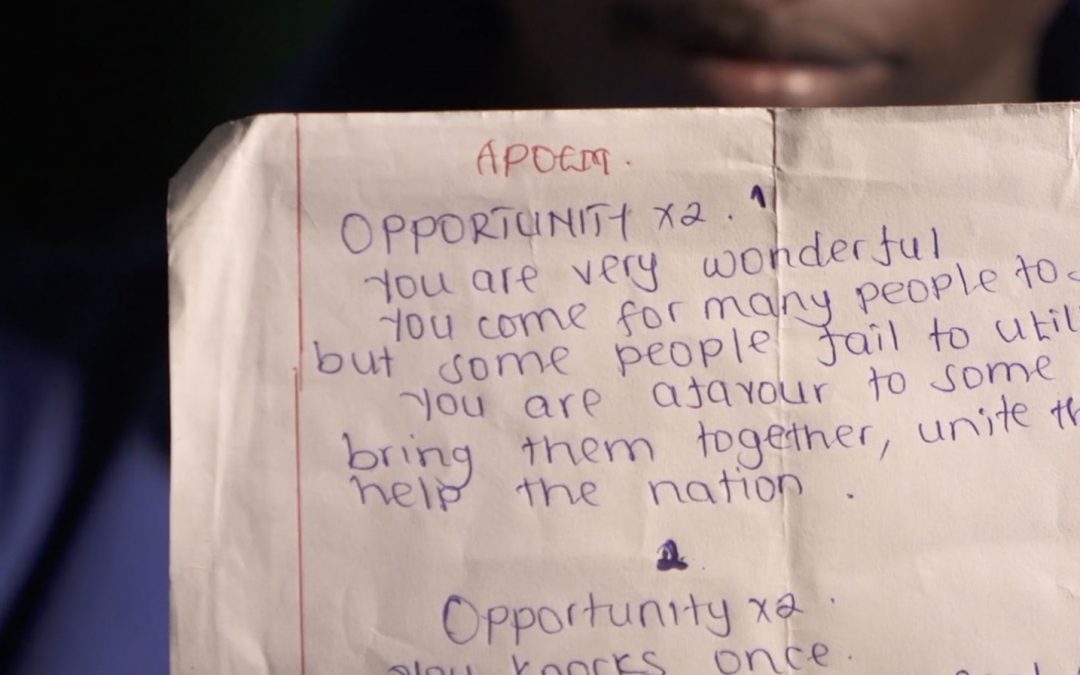 APOEM.
OPPORTUNITY x2. 1
You are very wonderful
You come for many people to
but some people fail to
You are afavour to some
bring them together, unite
help the nation.
2.
Opportunity x2.
knocks once.